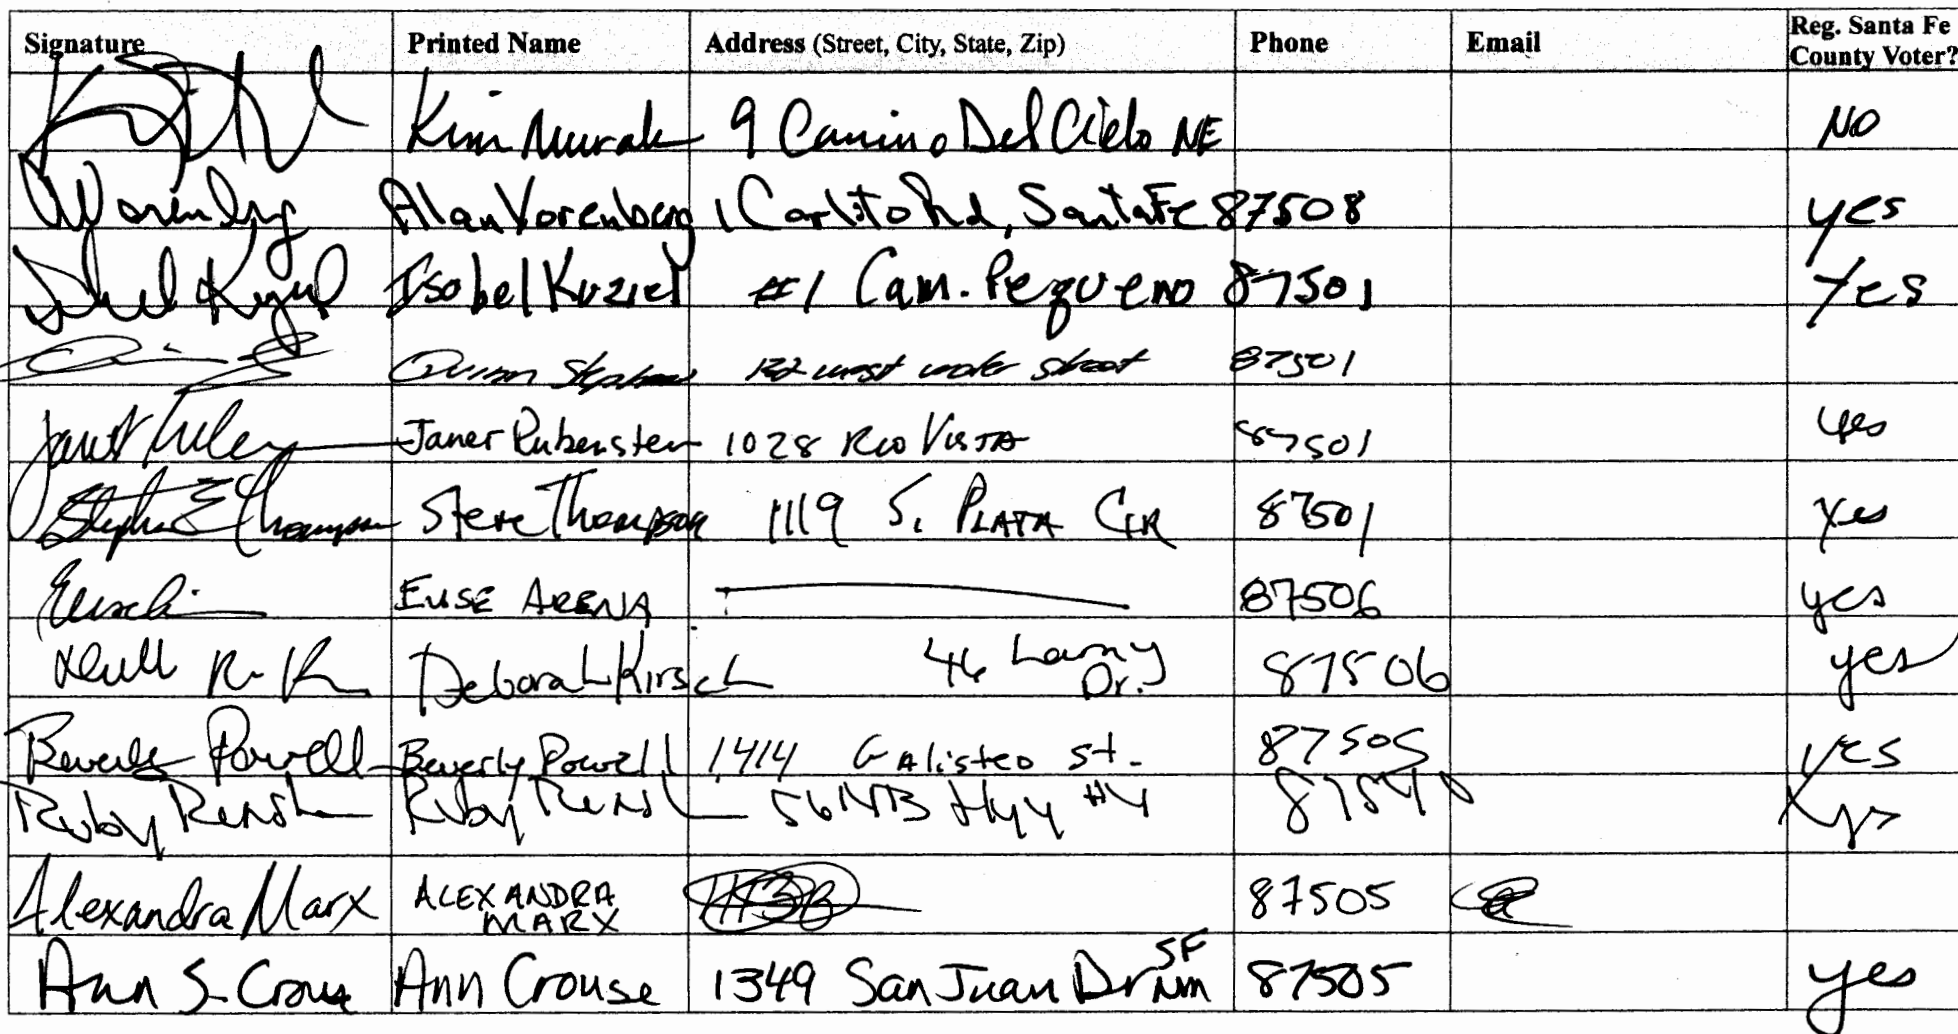 Signature Printed Name Address (Street, City, State, Zip) Phone Email Reg. Santa Fe County Voter?
Kim Murak 9 Camino Del Cielo NE NO
Alan Vorenberg 1 Carlito Rd, Santa Fe 87508 yes
Isobel Kuziel #1 Cam. Pequeno 87501 Yes
Quinn west water street 87501
Janet Rubenstein 1028 Rio Vista 87501 yes
Stephen E Thompson Steve Thompson 1119 S. PLATA CIR 87501 Yes
ELISE ARENA 87506 yes
Deborah Kirsch 46 Lamy Dr. 87506 yes
Beverly Powell Beverly Powell 1414 Galisteo St. 87505 yes
Ruby Ruby 56 NB Hwy #4
Alexandra Marx ALEXANDRA MARX 87505
Ann S. Crouse Ann Crouse 1349 San Juan Dr SF NM 87505 yes